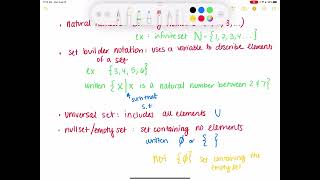 natural numbers
3, ...)
ex : infinite set N = {1, 2, 3, 4 ...}
• set builder notation : uses a variable to describe elements
of a set
ex {3, 4, 5, 6}
written {x | x is a natural number between 2 & 7}
such that
s.t
• universal set : includes all elements U
• null set/empty set : set containing no elements
written ∅ or { }
not {∅} set containing the
empty set